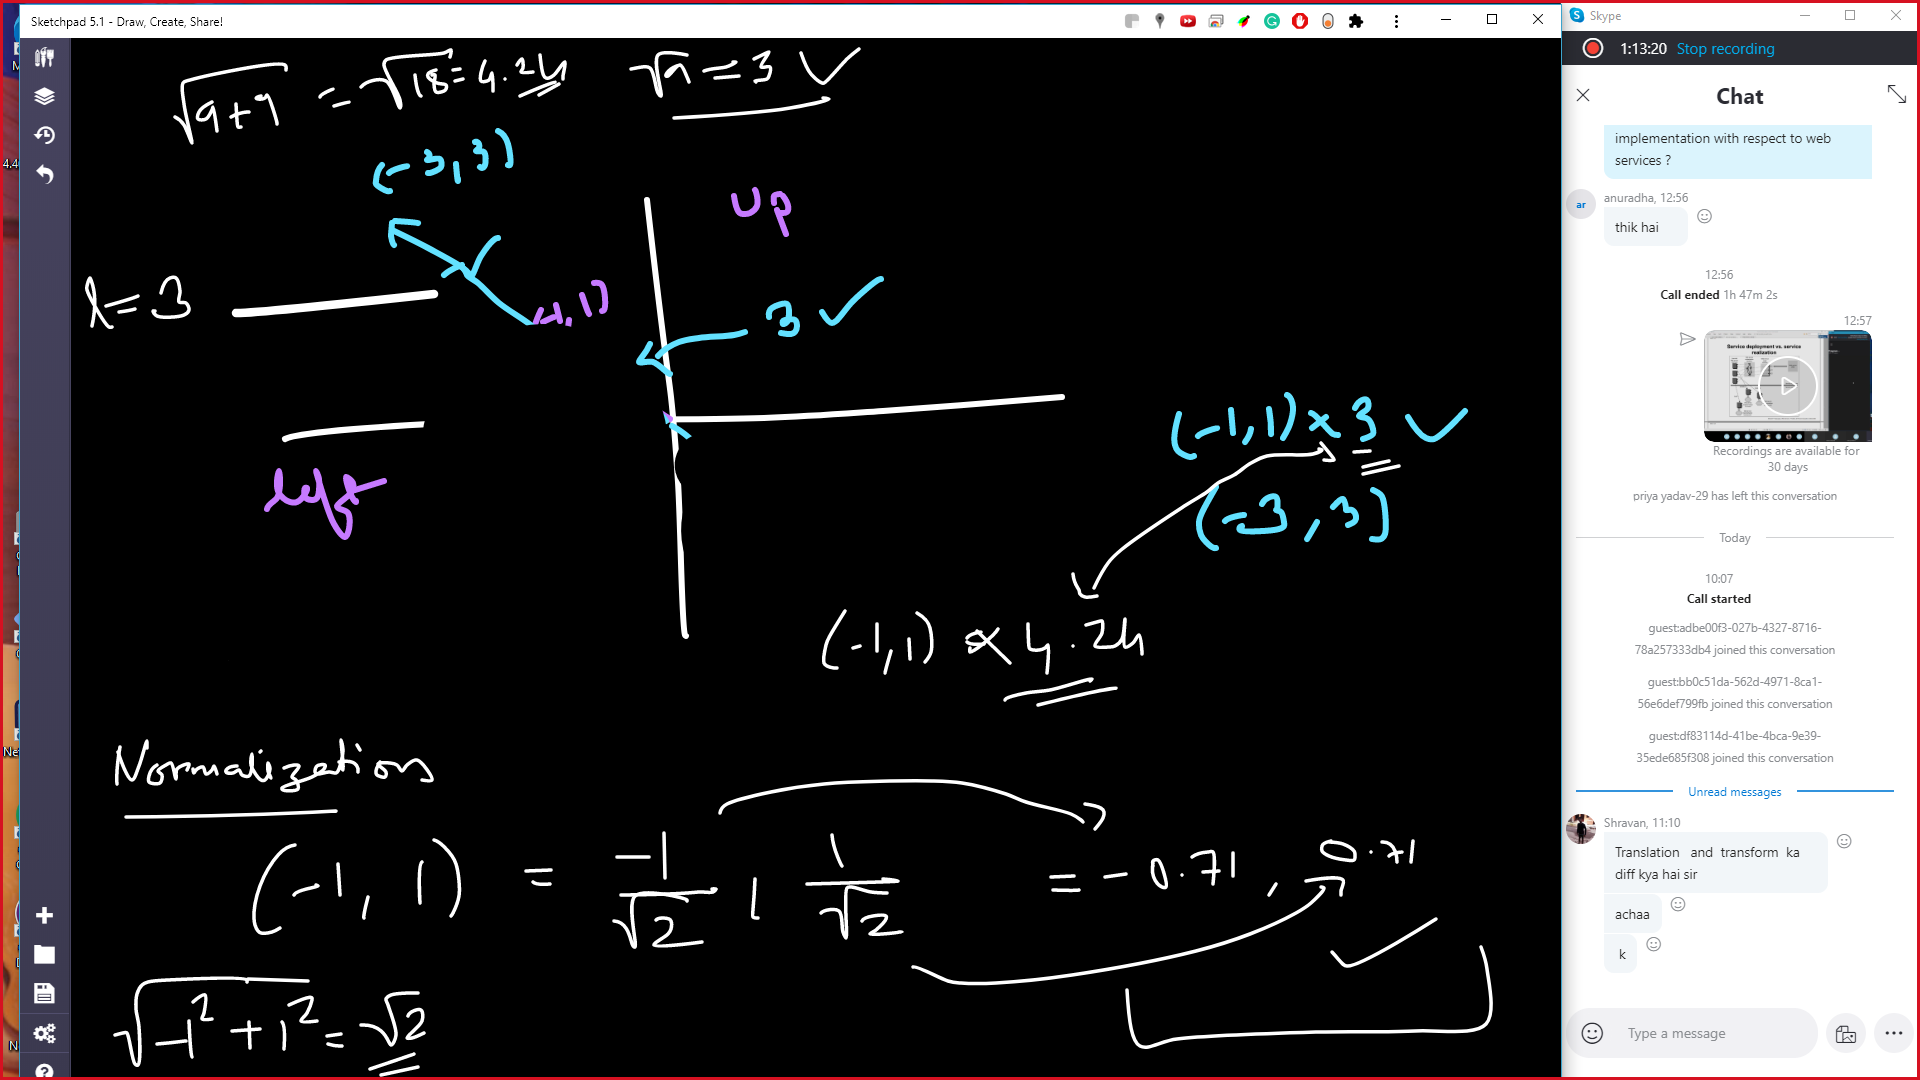 Sketchpad 5.1 - Draw, Create, Share!
√9+9 = √18 = 4.24 √9 = 3 ✓
(-3,3)
up
l=3
(-1,1)
3 ✓
(-1,1) × 3 ✓
(-3,3)
left
(-1,1) × 4.24
Normalization
(-1, 1) = -1/√2 , 1/√2 = -0.71, 0.71
√-1² + 1² = √2
Skype
1:13:20 Stop recording
Chat
implementation with respect to web
services ?
ar
anuradha, 12:56
thik hai
12:56
Call ended 1h 47m 2s
12:57
Service deployment vs. service
realization
Recordings are available for
30 days
priya yadav-29 has left this conversation
Today
10:07
Call started
guest:adbe00f3-027b-4327-8716-
78a257333db4 joined this conversation
guest:bb0c51da-562d-4971-8ca1-
56e6def799fb joined this conversation
guest:df83114d-41be-4bca-9e39-
35ede685f308 joined this conversation
Unread messages
Shravan, 11:10
Translation and transform ka
diff kya hai sir
achaa
k
Type a message